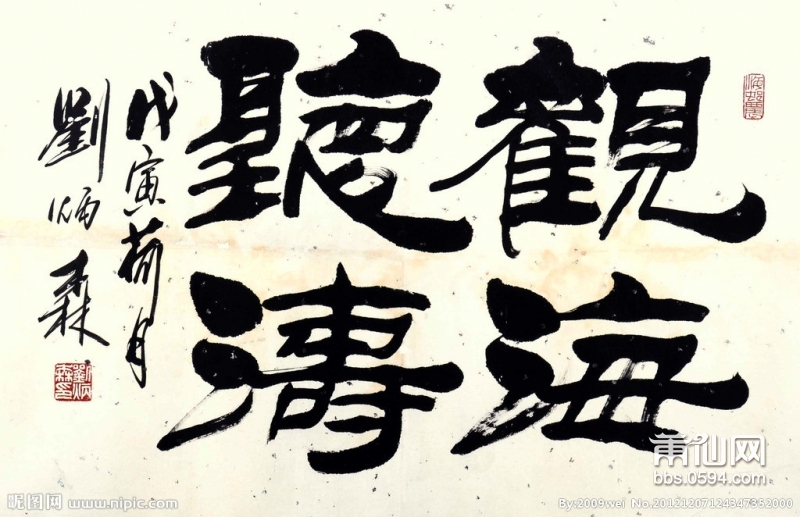 觀海
聽濤
戊寅荷月
劉炳森
劉炳森印
莆仙网
bbs.0594.com
昵图网 www.nipic.com
By:2009wei No.20121207124347352000